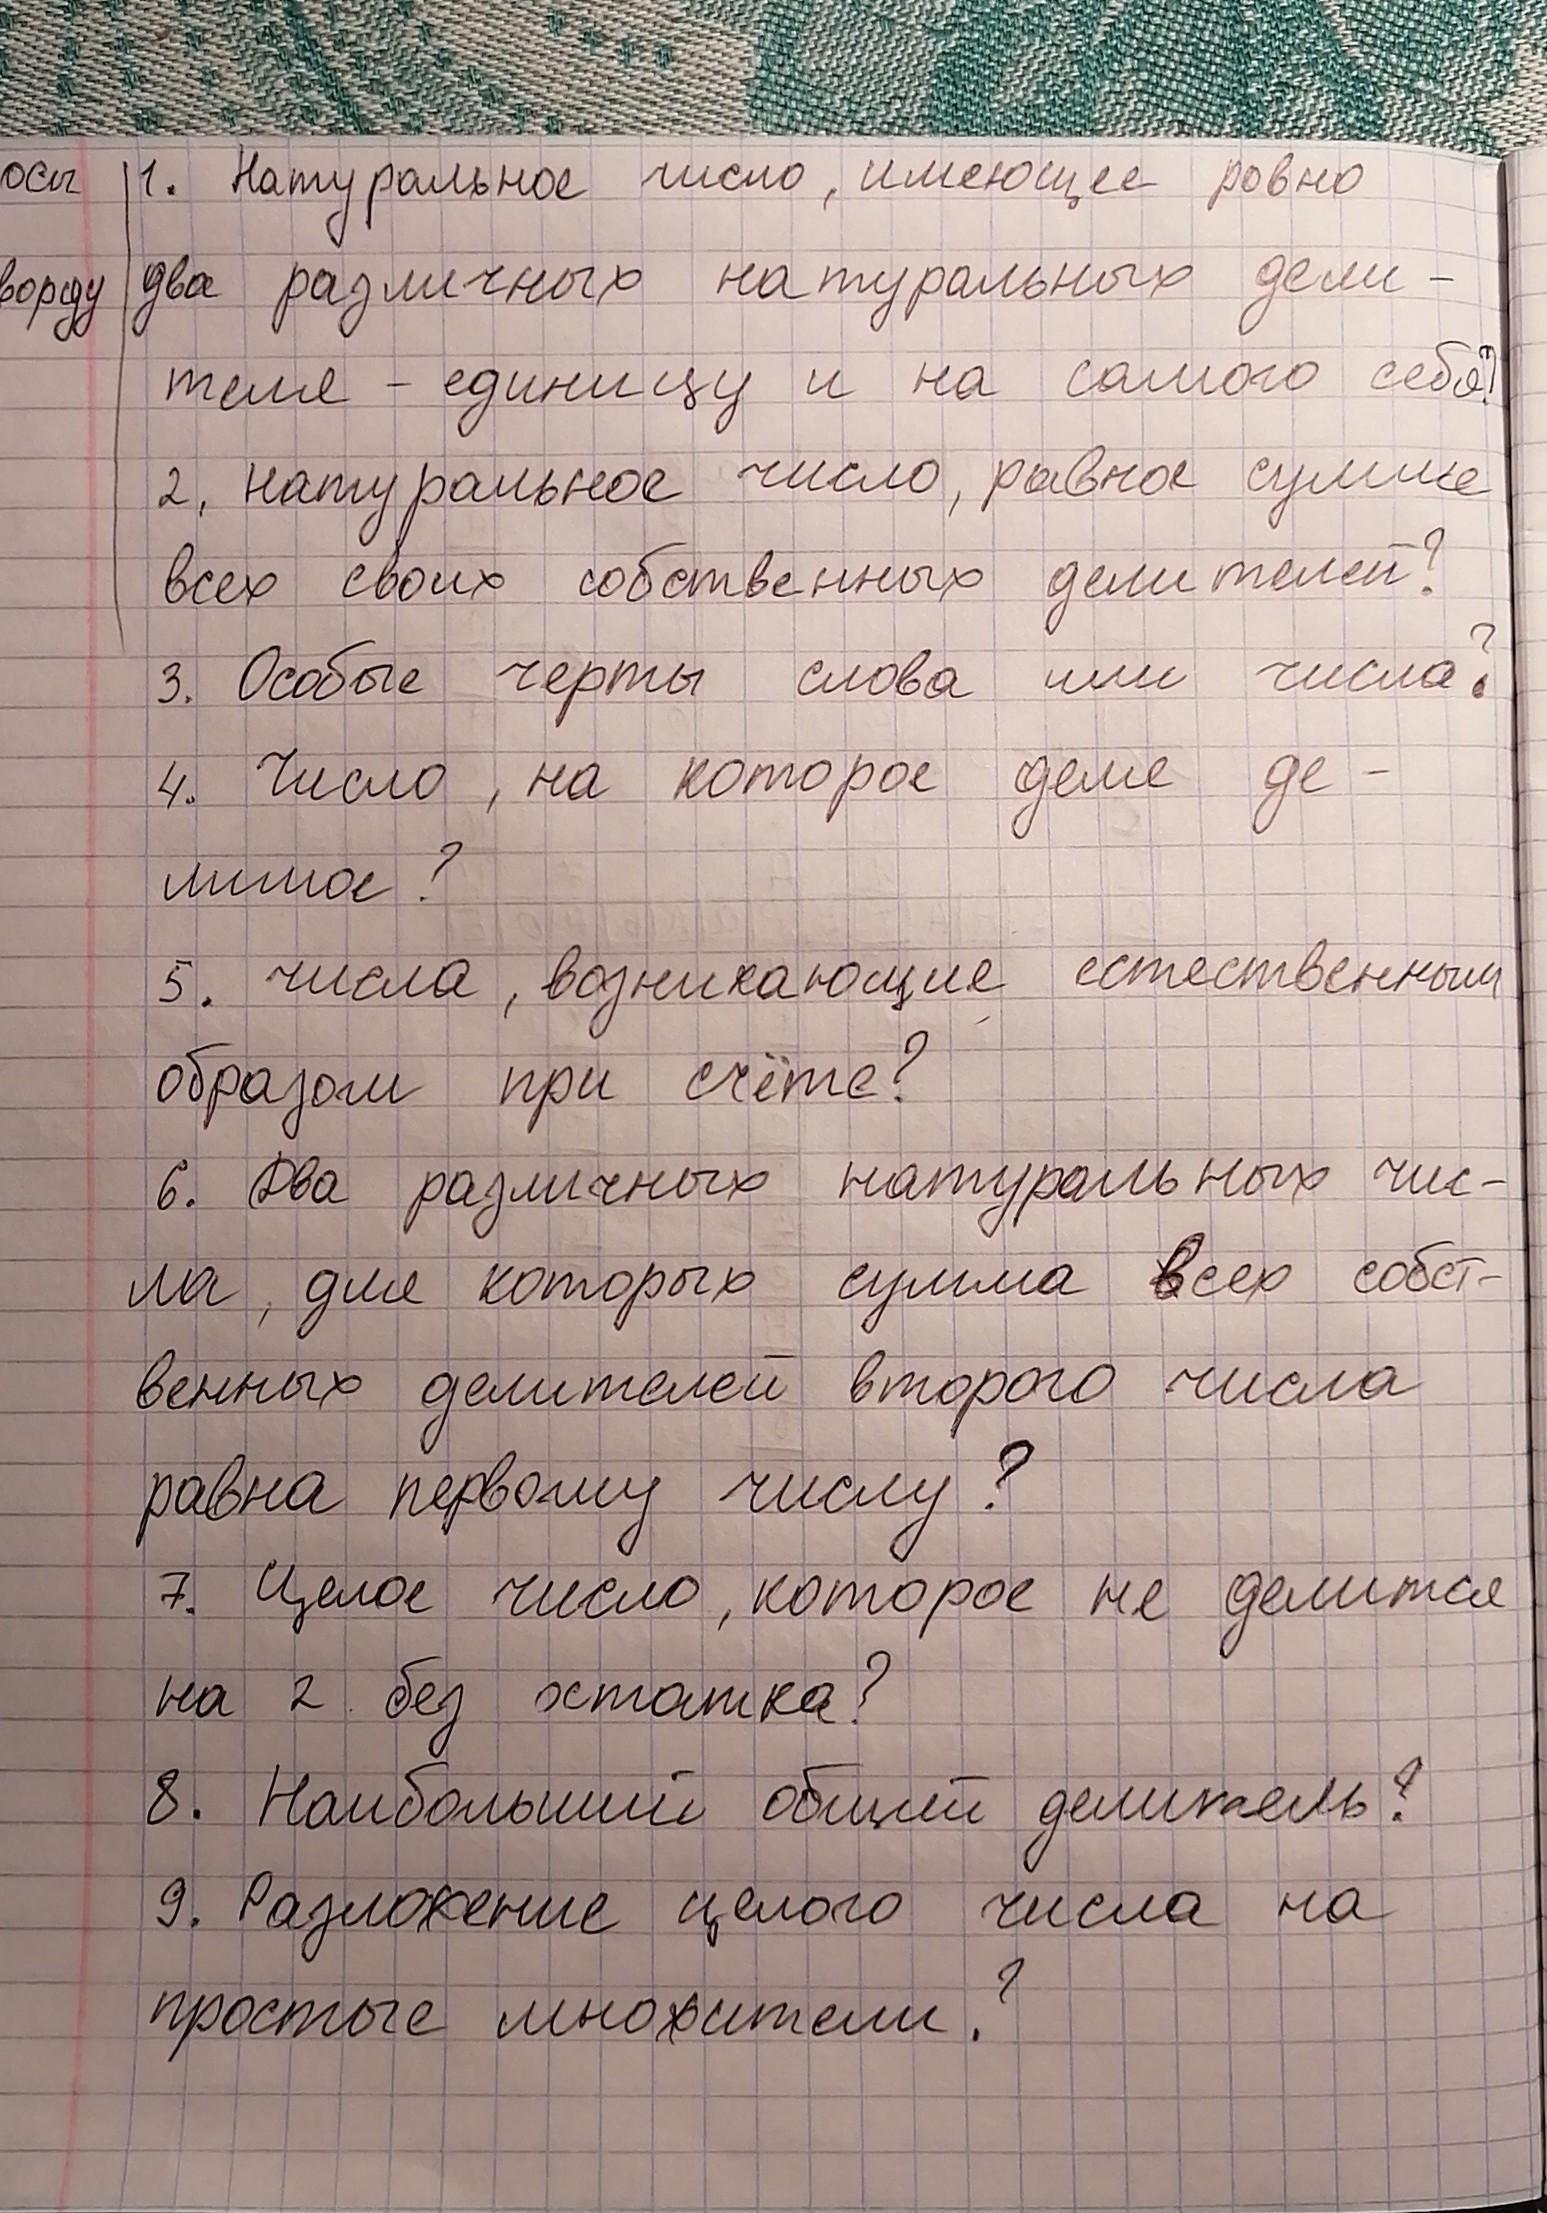 осы 1. Натуральное число, имеющее ровно
ворду два различных натуральных дели-
теля - единицу и на самого себя?
2. натуральное число, равное сумме
всех своих собственных делителей?
3. Особые черты слова или числа?
4. Число, на которое деля де-
лимое?
5. числа, возникающие естественным
образом при счёте?
6. Два различных натуральных чис-
ла, для которых сумма всех собст-
венных делителей второго числа
равна первому числу?
7. Целое число, которое не делится
на 2 без остатка?
8. Наибольший общий делитель?
9. Разложение целого числа на
простые множители?